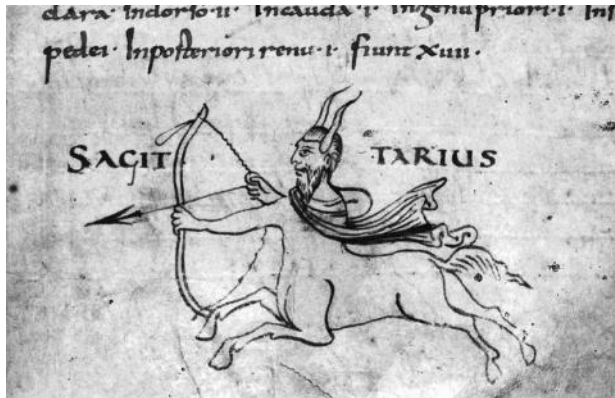 clara· Indorso·ii· Incauda·i· Ingenu priori·i·
pedei· Inposteriori renu·i· fiunt Xiiii·
SAGIT TARIUS